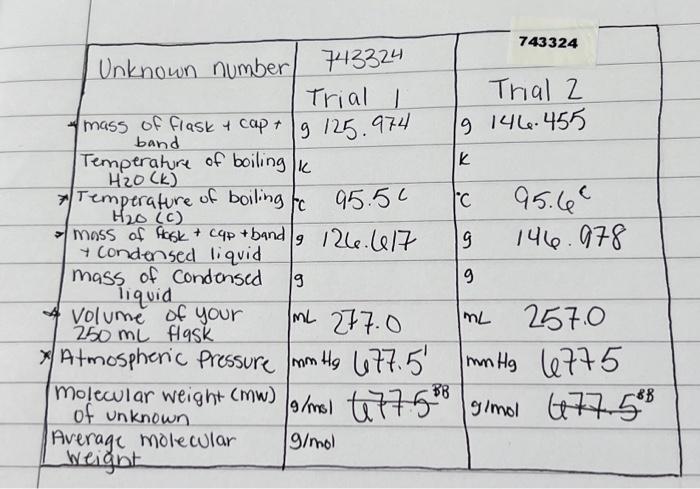 743324
Unknown number 743324
Trial 1 Trial 2
* mass of flask + cap + band g 125.974 g 146.455
Temperature of boiling H2O (K) K K
* Temperature of boiling H2O (C) °C 95.5 C °C 95.6 C
* mass of flask + cap + band + condensed liquid g 126.617 g 146.978
mass of condensed liquid g g
* Volume of your 250 mL flask mL 277.0 mL 257.0
* Atmospheric Pressure mm Hg 677.5 mm Hg 677 5
Molecular weight (mw) of unknown g/mol 677.5 BB g/mol 677.5 BB
Average molecular weight g/mol